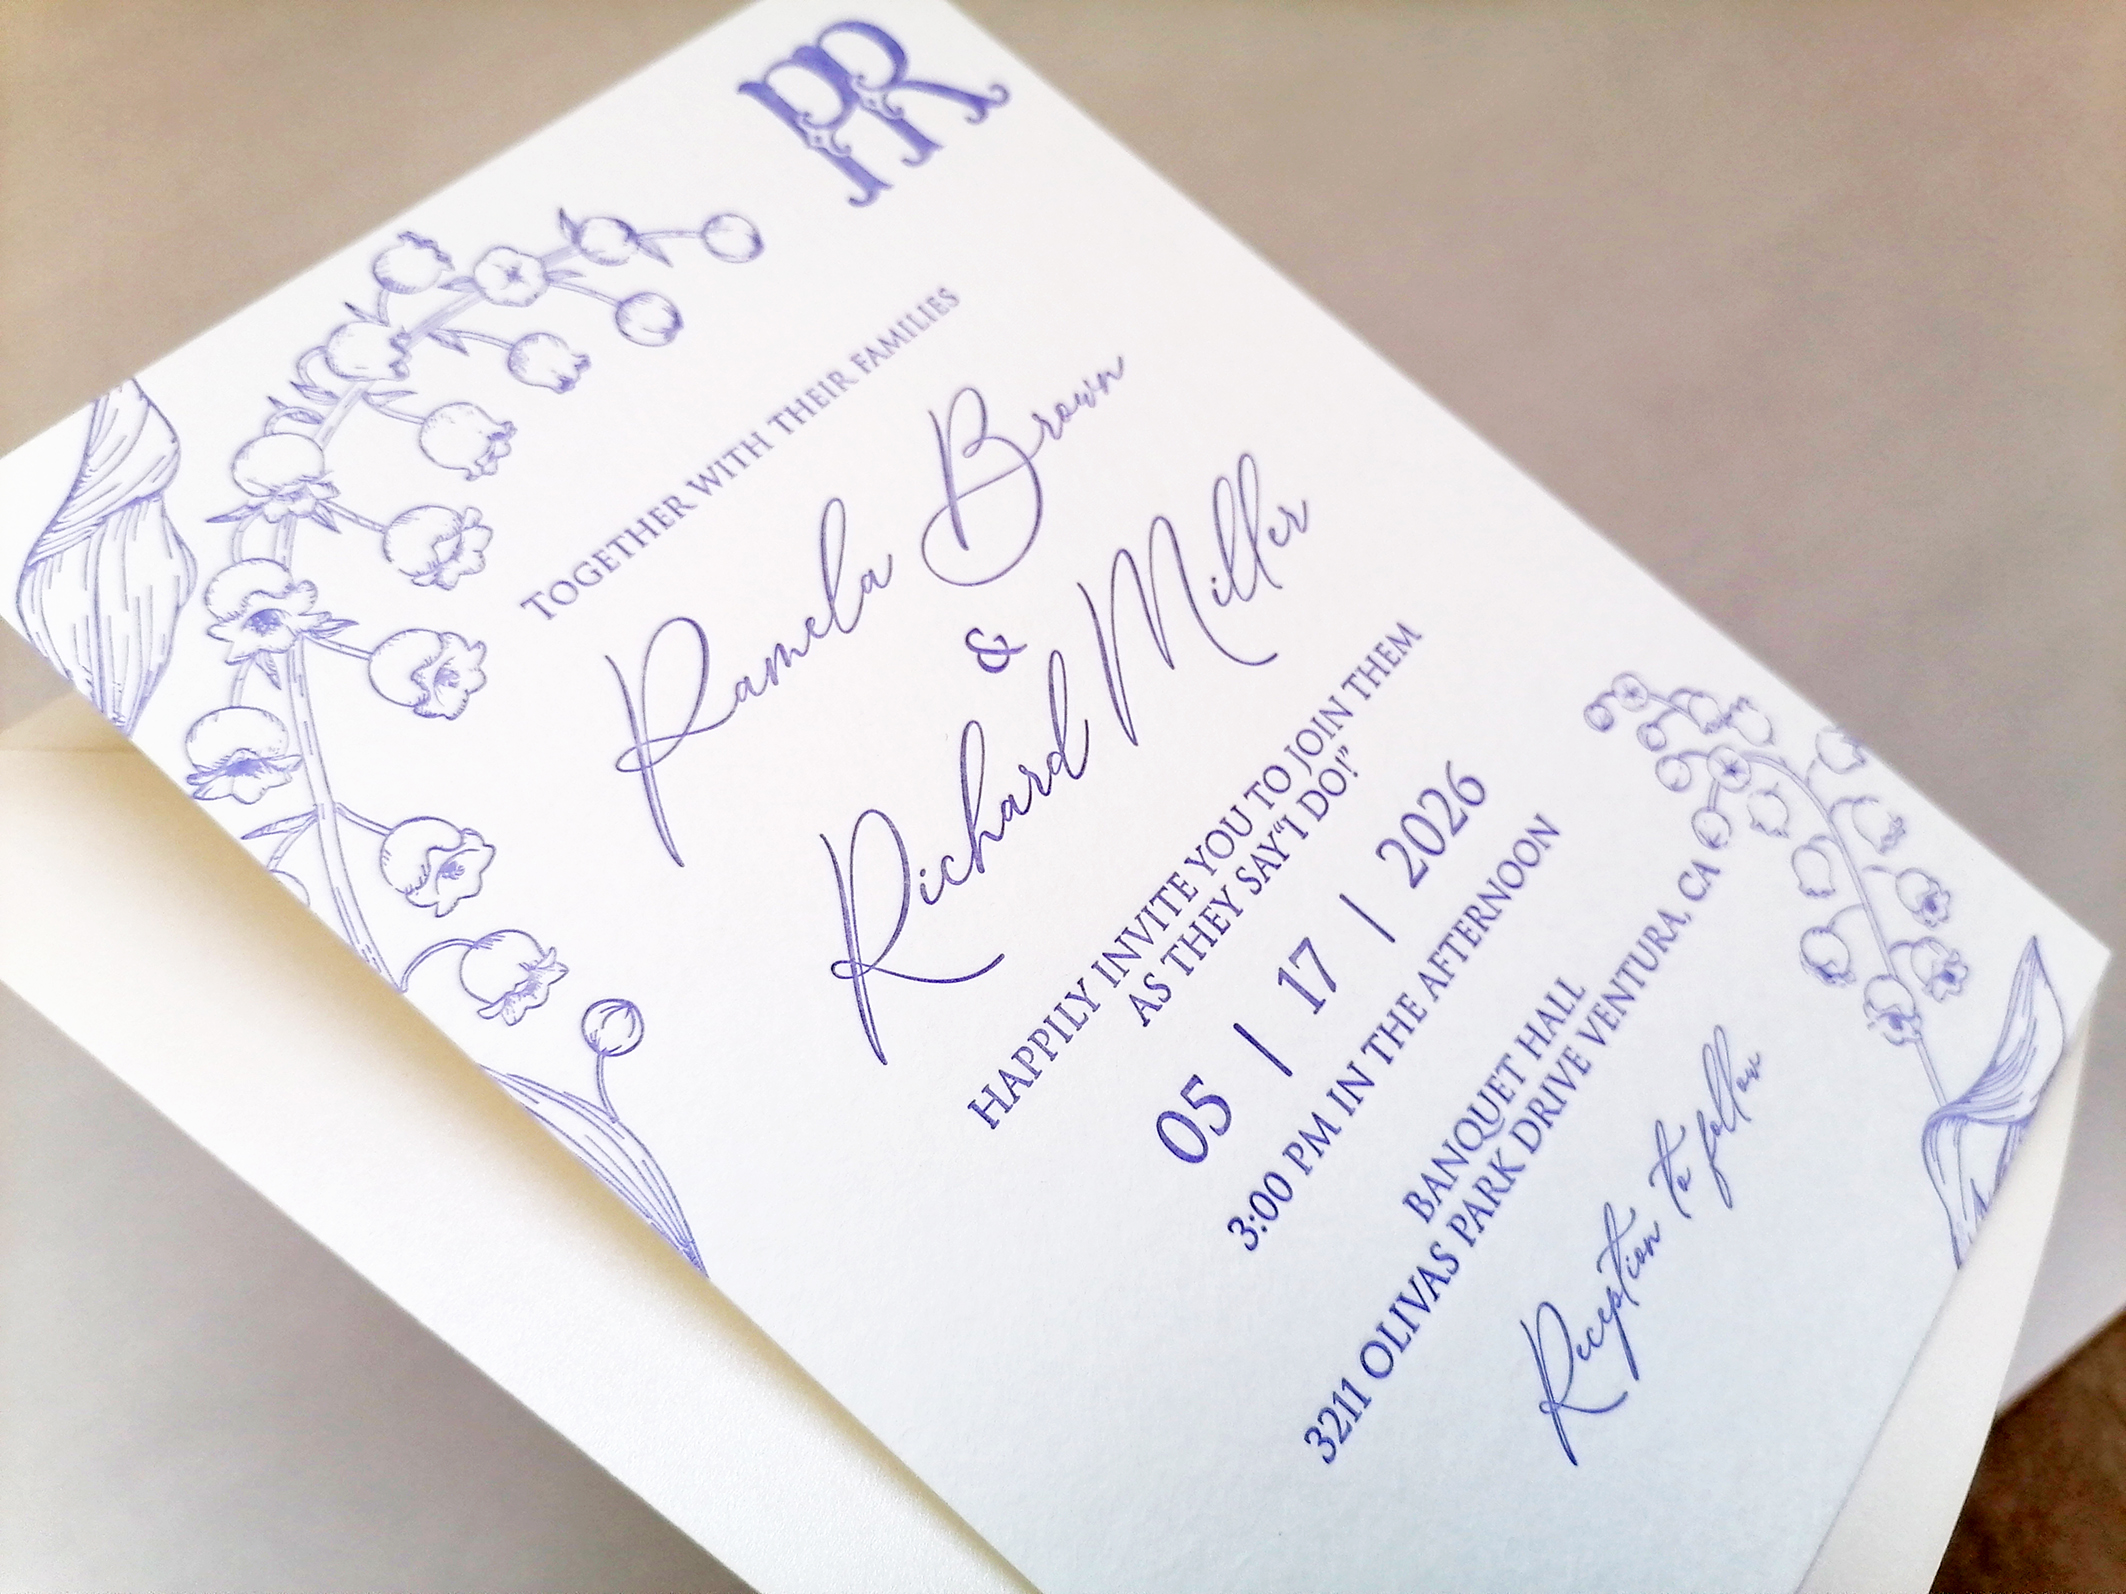 PR
TOGETHER WITH THEIR FAMILIES
Pamela Brown
&
Richard Miller
HAPPILY INVITE YOU TO JOIN THEM
AS THEY SAY "I DO!"
05 | 17 | 2026
3:00 PM IN THE AFTERNOON
BANQUET HALL
3211 OLIVAS PARK DRIVE VENTURA, CA
Reception to follow